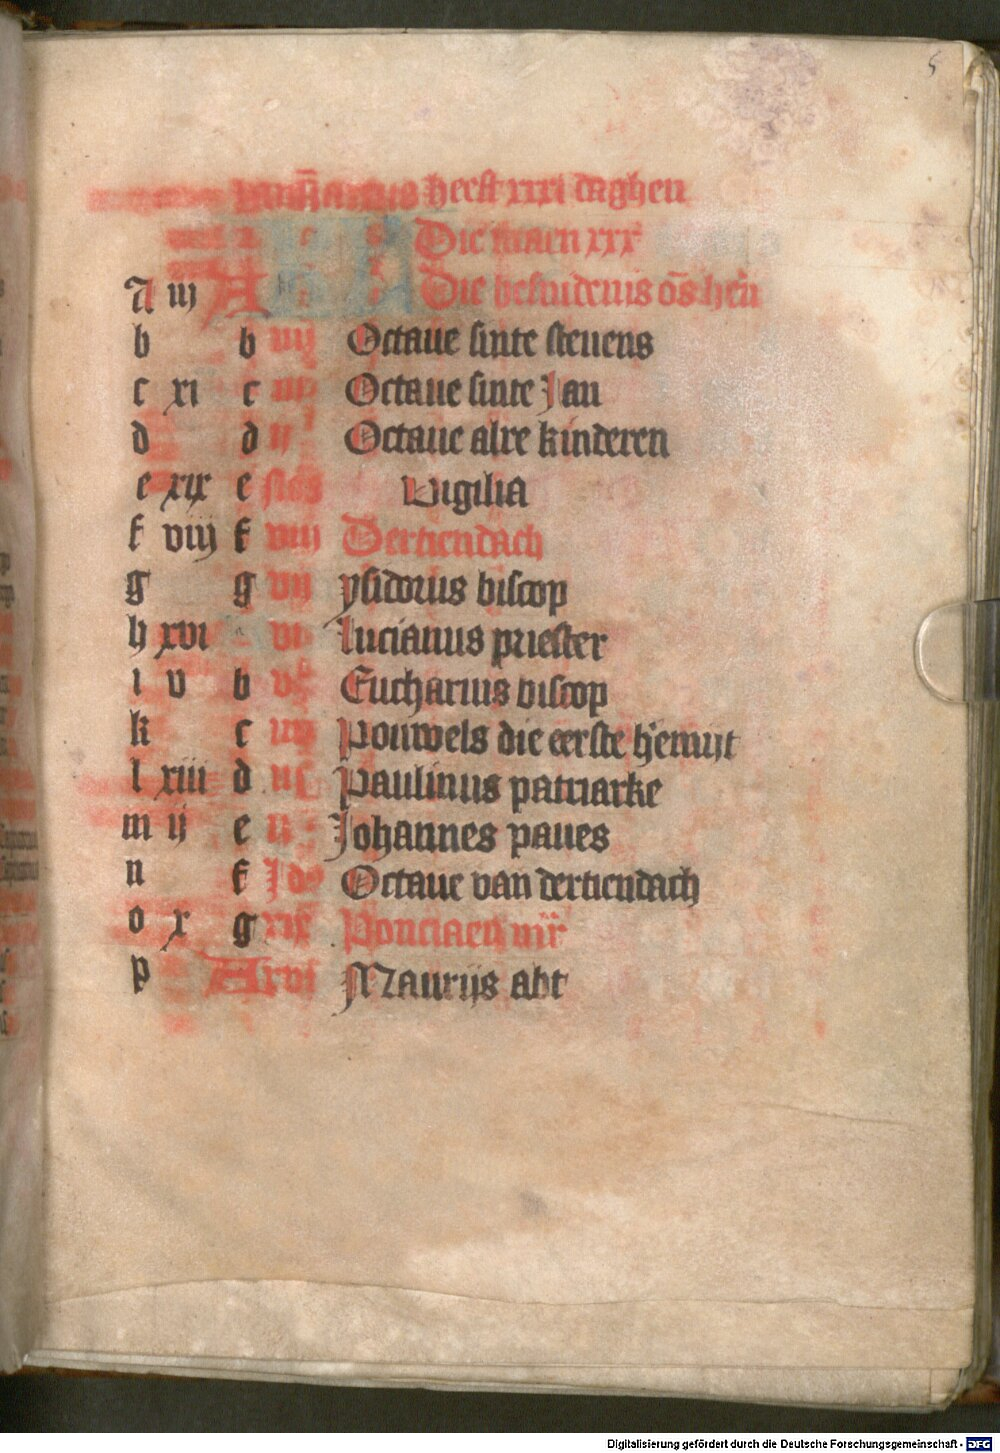 5
Januarius heest xxxi daghen
KL Die maen xxx
a iij A Die besnidenis ōs hēn
b b iiij Octaue sinte steuens
c xi c iij Octaue sinte Jan
d d ij Octaue alre kinderen
e xix e nas Vigilia
f viij f viij Dertiendach
g g vij ysidorus biscop
h xvi vi lucianus priester
i v b v Eucharius biscop
k c iiij Pouwels die eerste h'emijt
l xiii d iij Paulinus patriarke
m ij e ij Johannes paues
n f Idº Octaue van dertiendach
o x g xix Ponciaen mr̄
p A xviij Maurijs abt
Digitalisierung gefördert durch die Deutsche Forschungsgemeinschaft - DFG